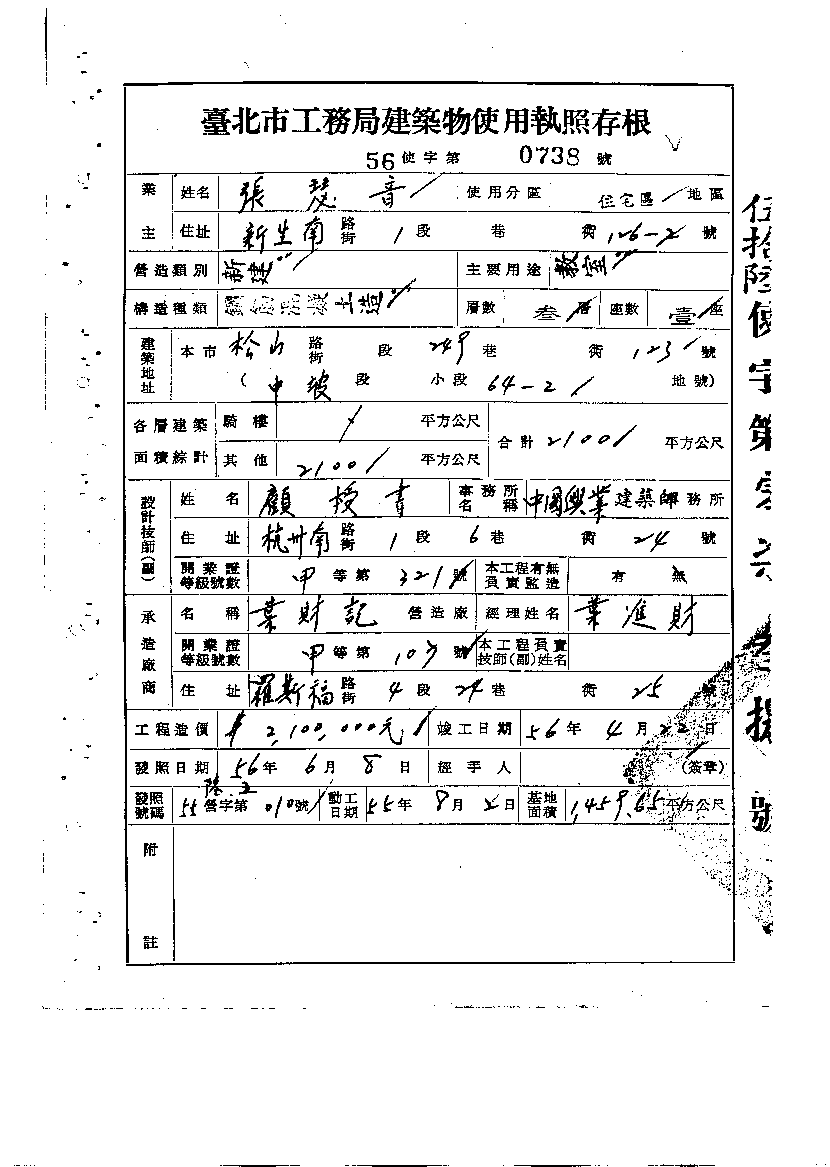 臺北市工務局建築物使用執照存根
56使字第 0738 號
業主 姓名 張 音 使用分區 住宅區 地區
住址 新生南 路街 1 段 巷 衖 126-2 號
營造類別 新建 主要用途 教室
構造種類 土造 層數 叁 層 座數 壹 座
建築地址 本市 松山 路街 段 249 巷 衖 123 號
(中坡 段 小段 64-2 地號)
各層建築面積綜計 騎樓 平方公尺 合計 2100 平方公尺
其他 2100 平方公尺
設計技師(副) 姓名 顧授書 事務所名稱 中國興業建築師務所
住址 杭州南 路街 1 段 6 巷 衖 24 號
開業證等級號數 甲 等第 321 號 本工程有無負責監造 有 無
承造廠商 名稱 葉財記 營造廠 經理姓名 葉進財
開業證等級號數 甲 等第 107 號 本工程負責技師(副)姓名
住址 羅斯福 路街 4 段 24 巷 衖 25 號
工程造價 2,100,000元 竣工日期 56 年 4 月 22 日
發照日期 56 年 6 月 8 日 經手人 (簽章)
發照號碼 55 營字第 010 號 動工日期 55 年 8 月 2 日 基地面積 1,459.65 平方公尺
附註
伍拾陸使字第 號